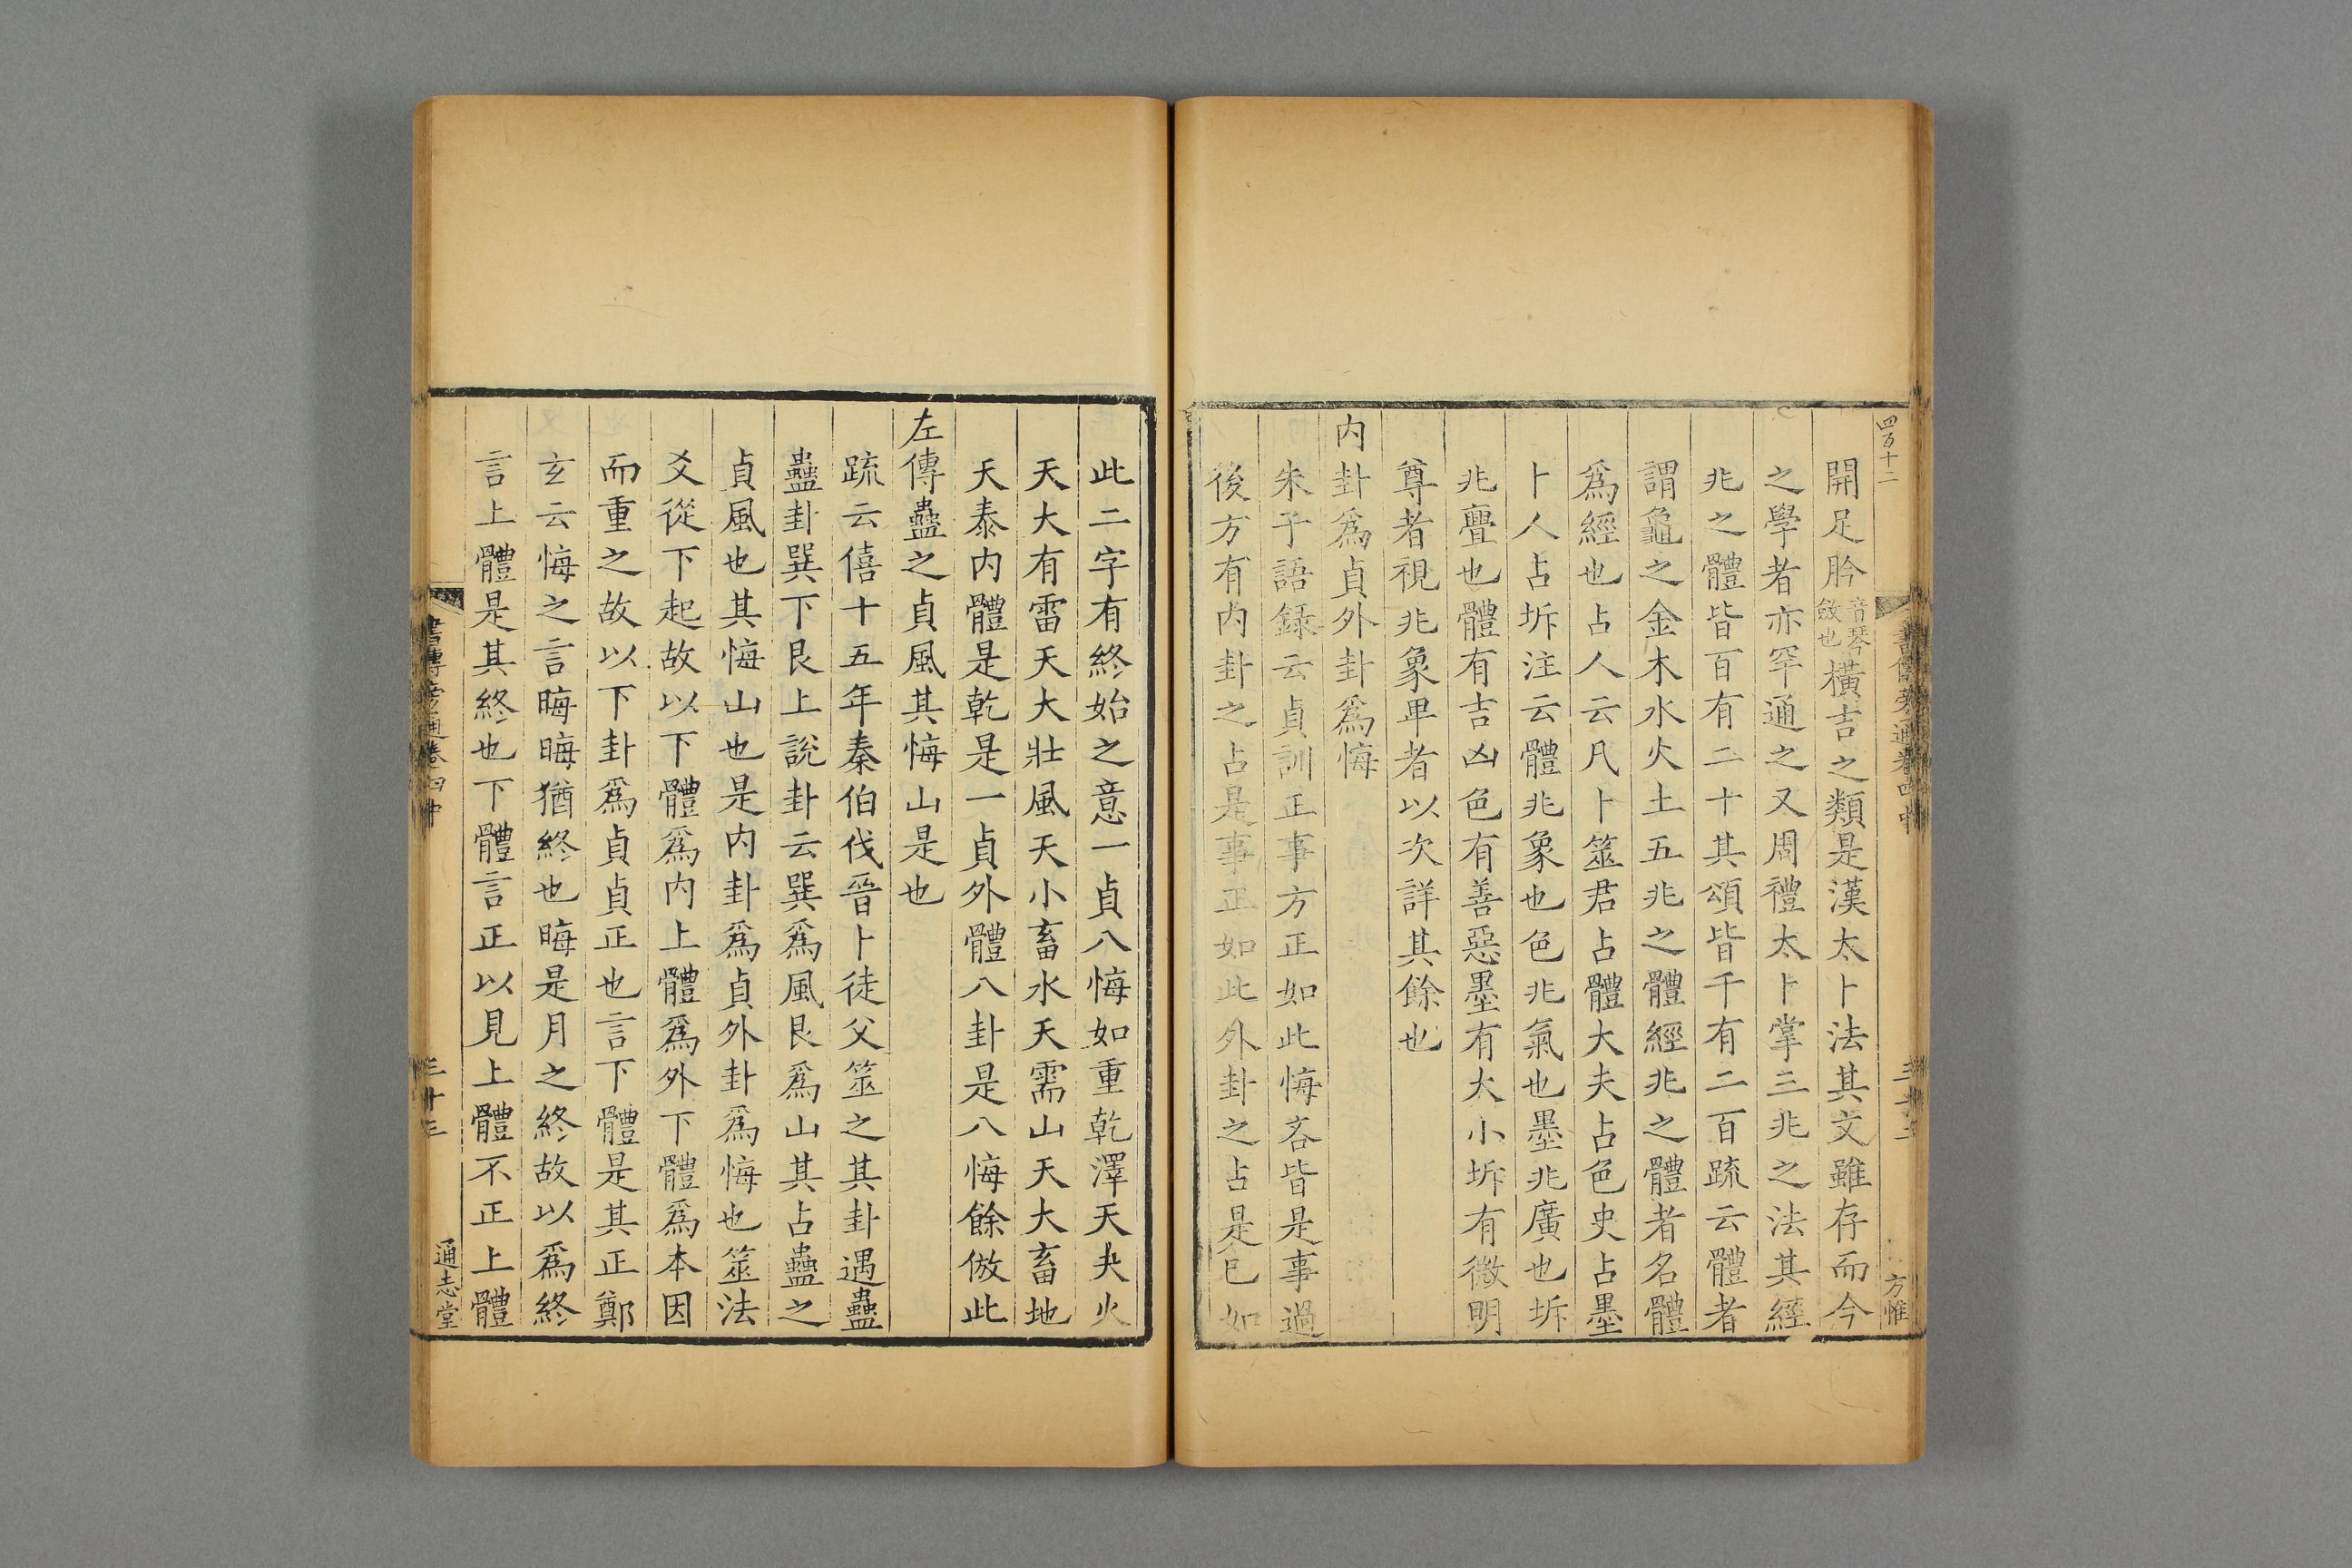 四百十二
開足肣音琴斂也橫吉之類是漢太卜法其文雖存而今
之學者亦罕通之又周禮太卜掌三兆之法其經
兆之體皆百有二十其頌皆千有二百疏云體者
謂龜之金木水火土五兆之體經兆之體者名體
爲經也占人云凡卜筮君占體大夫占色史占墨
卜人占坼注云體兆象也色兆氣也墨兆廣也坼
兆亹也體有吉凶色有善惡墨有大小坼有微明
尊者視兆象卑者以次詳其餘也
內卦爲貞外卦爲悔
朱子語錄云貞訓正事方正如此悔吝皆是事過
後方有內卦之占是事正如此外卦之占是已如
書傳旁通卷四中
三十二
方惟
此二字有終始之意一貞八悔如重乾澤天夬火
天大有雷天大壯風天小畜水天需山天大畜地
天泰內體是乾是一貞外體八卦是八悔餘倣此
左傳蠱之貞風其悔山是也
疏云僖十五年秦伯伐晉卜徒父筮之其卦遇蠱
蠱卦巽下艮上說卦云巽爲風艮爲山其占蠱之
貞風也其悔山也是內卦爲貞外卦爲悔也筮法
爻從下起故以下體爲內上體爲外下體爲本因
而重之故以下卦爲貞貞正也言下體是其正鄭
玄云悔之言晦晦猶終也晦是月之終故以爲終
言上體是其終也下體言正以見上體不正上體
書傳旁通卷四中
三十三
通志堂